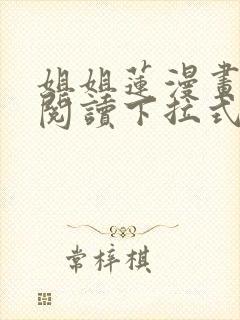 姐姐蓮漫畫
閱讀下拉式
常梓棋